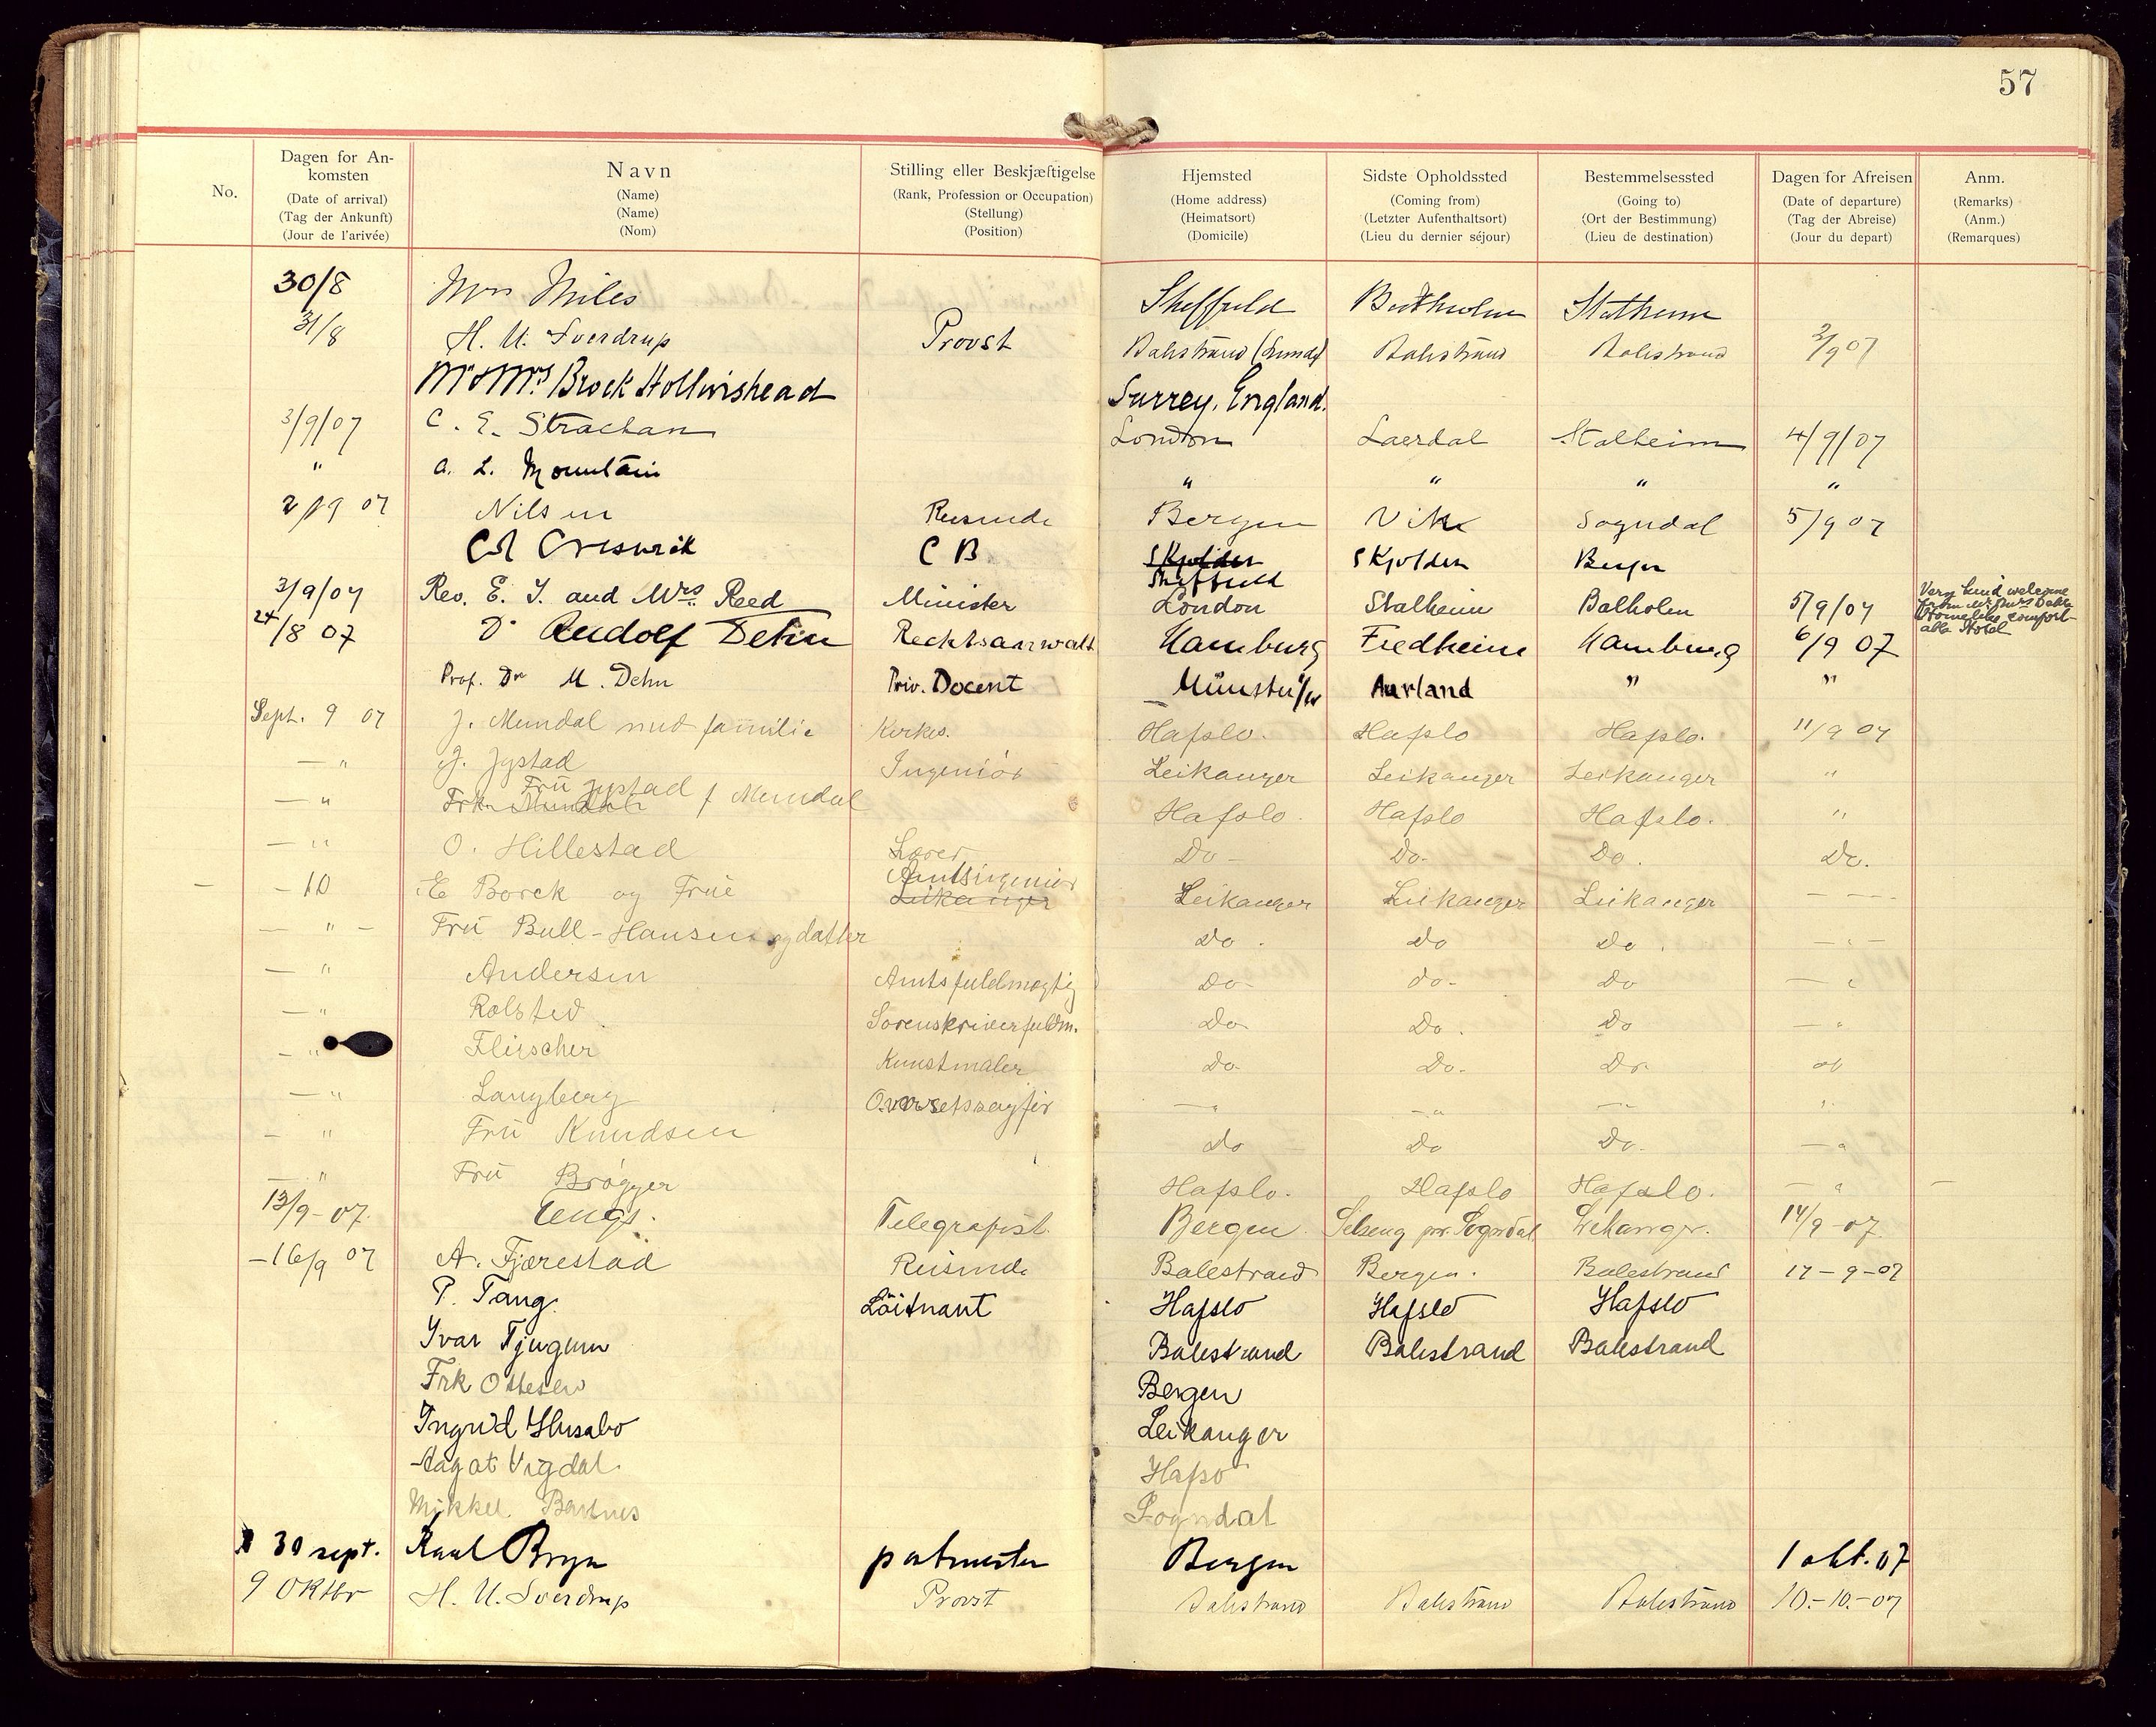 57
No.
Dagen for An-
komsten
(Date of arrival)
(Tag der Ankunft)
(Jour de l'arivée)
Navn
(Name)
(Name)
(Nom)
Stilling eller Beskjæftigelse
(Rank, Profession or Occupation)
(Stellung)
(Position)
Hjemsted
(Home address)
(Heimatsort)
(Domicile)
Sidste Opholdssted
(Coming from)
(Letzter Aufenthaltsort)
(Lieu du dernier séjour)
Bestemmelsessted
(Going to)
(Ort der Bestimmung)
(Lieu de destination)
Dagen for Afreisen
(Date of departure)
(Tag der Abreise)
(Jour du depart)
Anm.
(Remarks)
(Anm.)
(Remarques)
30/8 Miles Sheffield
31/8 H. U. Sverdrup Provst Balestrand Balestrand Balestrand 2/9 07
Mr & Mrs Brock Hollinshead Surrey, England.
3/9/07 C. E. Strachan London Laerdal Stalheim 4/9/07
" A. L. Mountain " " " "
Nilsen Reisende Bergen Vik Sogndal 5/9 07
C B Skjolden Skjolden Bergen
Sheffield
3/9/07 Rev. E. J. and Mrs Reed Minister London Stalheim Balholm 5/9/07 Very kind welcome
Homelike comfort-
able Hotel
24/8 07 Dr Rudolf Dehn Rechtsanwalt Hamburg Fredheim Hamburg 6/9 07
Prof. Dr M. Dehn Priv. Docent Münster i/W Aurland " "
Sept. 9 07 J. Mundal med familie Kirkes. Hafslo. Hafslo Hafslo. 11/9 07
— " J. Jystad Ingeniör Leikanger Leikanger Leikanger "
Frü Jystad f Mundal
— " Frk. Mundal Hafslo. Hafslo Hafslo. "
— " O. Hillestad Lærer Do — Do. Do. Do.
Amtsingeniör
— 10 E Borck og Frue Leikanger Leikanger Leikanger Leikanger — —
— " — Frü Bull-Hansen og datter Do. Do Do. — " —
— " Andersen Amtsfuldmægtig Do- do- Do — "
— " Rolsted Sorenskriverfuldm. Do Do. Do — "
— " Fleischer Kunstmaler Do- Do- Do- do
— " Langberg — " — " — " "
— " Frü Knudsen do Do Do. — "
— " Frü Brøgger Hafslo. Hafslo Hafslo. — "
13/9-07. Engs. Telegrafist. Bergen. Selseng pr. Sogndal Leikanger. 14/9-07
—16/9 07 A. Fjærestad Reisende Balestrand Bergen. Balestrand 17-9-07
P. Tang. Löitnant Hafslo Hafslo Hafslo
Yvar Tjugum Balestrand Balestrand Balestrand
Frk Ottesen Bergen
Ingrid Husabo Leikanger
Aagot Vigdal. Hafso
Mikkel Sogndal
30 sept. Bryn postmester Bergen 1 okt. 07
9 Oktbr H. U. Sverdrup Provst Balestrand Balestrand Balestrand 10.-10.-07